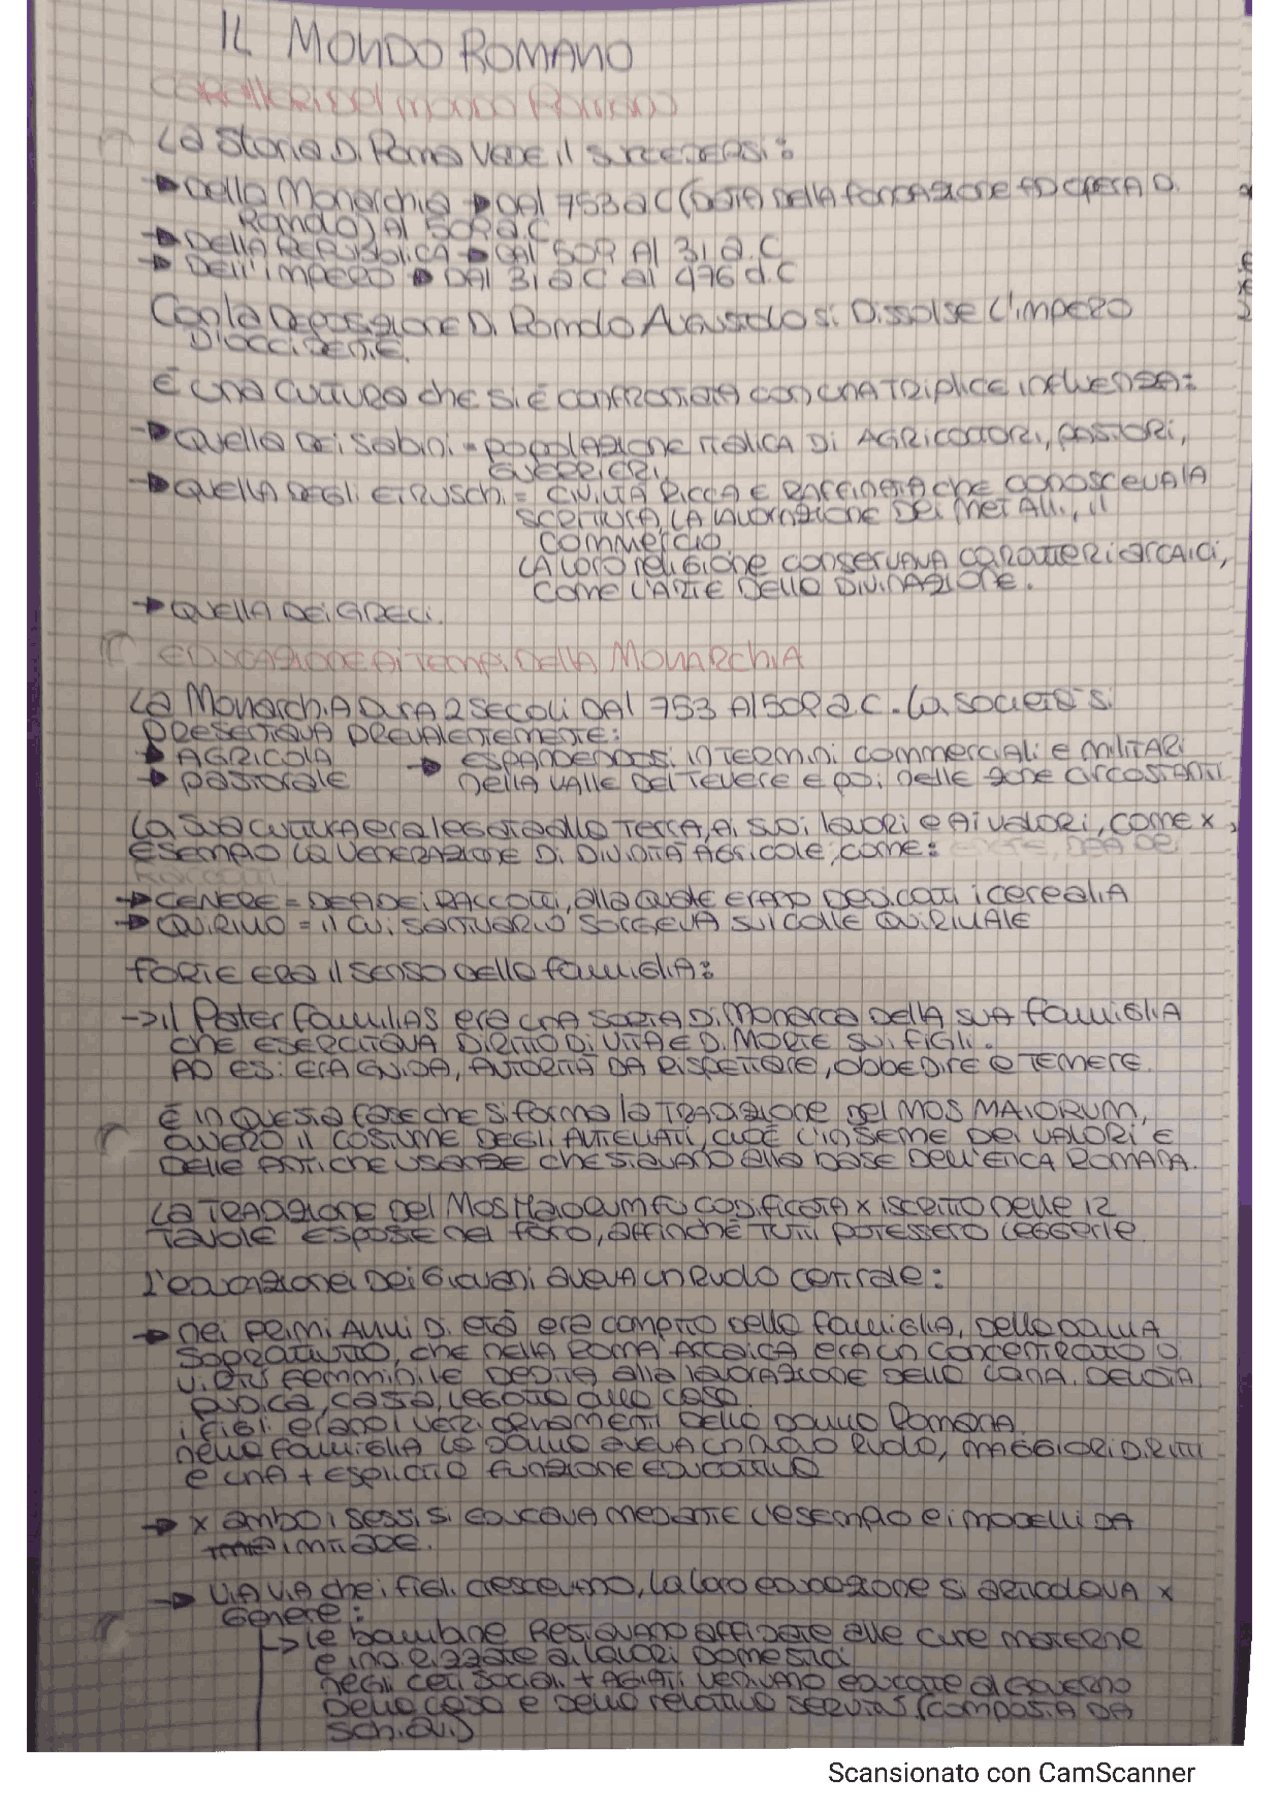 IL MONDO ROMANO
Caratteri del mondo Romano
La storia di Roma vede il succedersi:
→ della Monarchia → dal 753 a.C (data della fondazione ad opera di
Romolo) al 509 a.C
→ della Repubblica → dal 509 al 31 a.C
→ dell'impero → dal 31 a.C al 476 d.C
Con la deposizione di Romolo Augustolo si dissolse l'impero
d'occidente.
È una cultura che si è confrontata con una triplice influenza:
→ quella dei Sabini = popolazione italica di agricoltori, pastori,
guerrieri.
→ quella degli etruschi = civiltà ricca e raffinata che conosceva la
scrittura, la lavorazione dei metalli, il
commercio
la loro religione conservava caratteri arcaici,
come l'arte della divinazione.
→ quella dei Greci.
Educazione ai tempi della Monarchia
La Monarchia dura 2 secoli dal 753 al 509 a.C. La società si
presentava prevalentemente:
→ agricola → espandendosi in termini commerciali e militari
→ pastorale nella valle del Tevere e poi nelle zone circostanti
La sua cultura era legata alla terra, ai suoi lavori e ai valori, come x
esempio la venerazione di divinità agricole, come:
→ Cenere = dea dei raccolti, alla quale erano dedicati i cerealia
→ Quirino = il cui santuario sorgeva sul colle Quirinale
Forte era il senso della famiglia:
→ il Pater familias era una sorta di monarca della sua famiglia
che esercitava diritto di vita e di morte sui figli.
Ad es: era guida, autorità da rispettare, obbedire e temere.
È in questa fase che si forma la tradizione del MOS MAIORUM,
ovvero il costume degli antenati, cioè l'insieme dei valori e
delle antiche usanze che stavano alla base dell'etica romana.
La tradizione del Mos Maiorum fu codificata x iscritto nelle 12
tavole esposte nel foro, affinché tutti potessero leggerle.
L'educazione dei giovani aveva un ruolo centrale:
→ nei primi anni di età era compito della famiglia, della donna
sopratutto, che nella Roma arcaica era un concentrato di
virtù femminile dedita alla lavorazione della lana, devota,
pudica, casta, legata alla casa.
i figli erano i veri ornamenti della donna Romana.
nella famiglia la donna aveva un ruolo, maggiori diritti
e una + esplicita funzione educativa
→ x ambo i sessi si educava mediante l'esempio e i modelli da
imitare.
→ Via via che i figli crescevano, la loro educazione si articolava x
genere:
→ le bambine restavano affidate alle cure materne
e indirizzate ai lavori domestici
negli ceti sociali + agiati venivano educate al governo
della casa e della relativa servitù (composta da
schiavi)
Scansionato con CamScanner